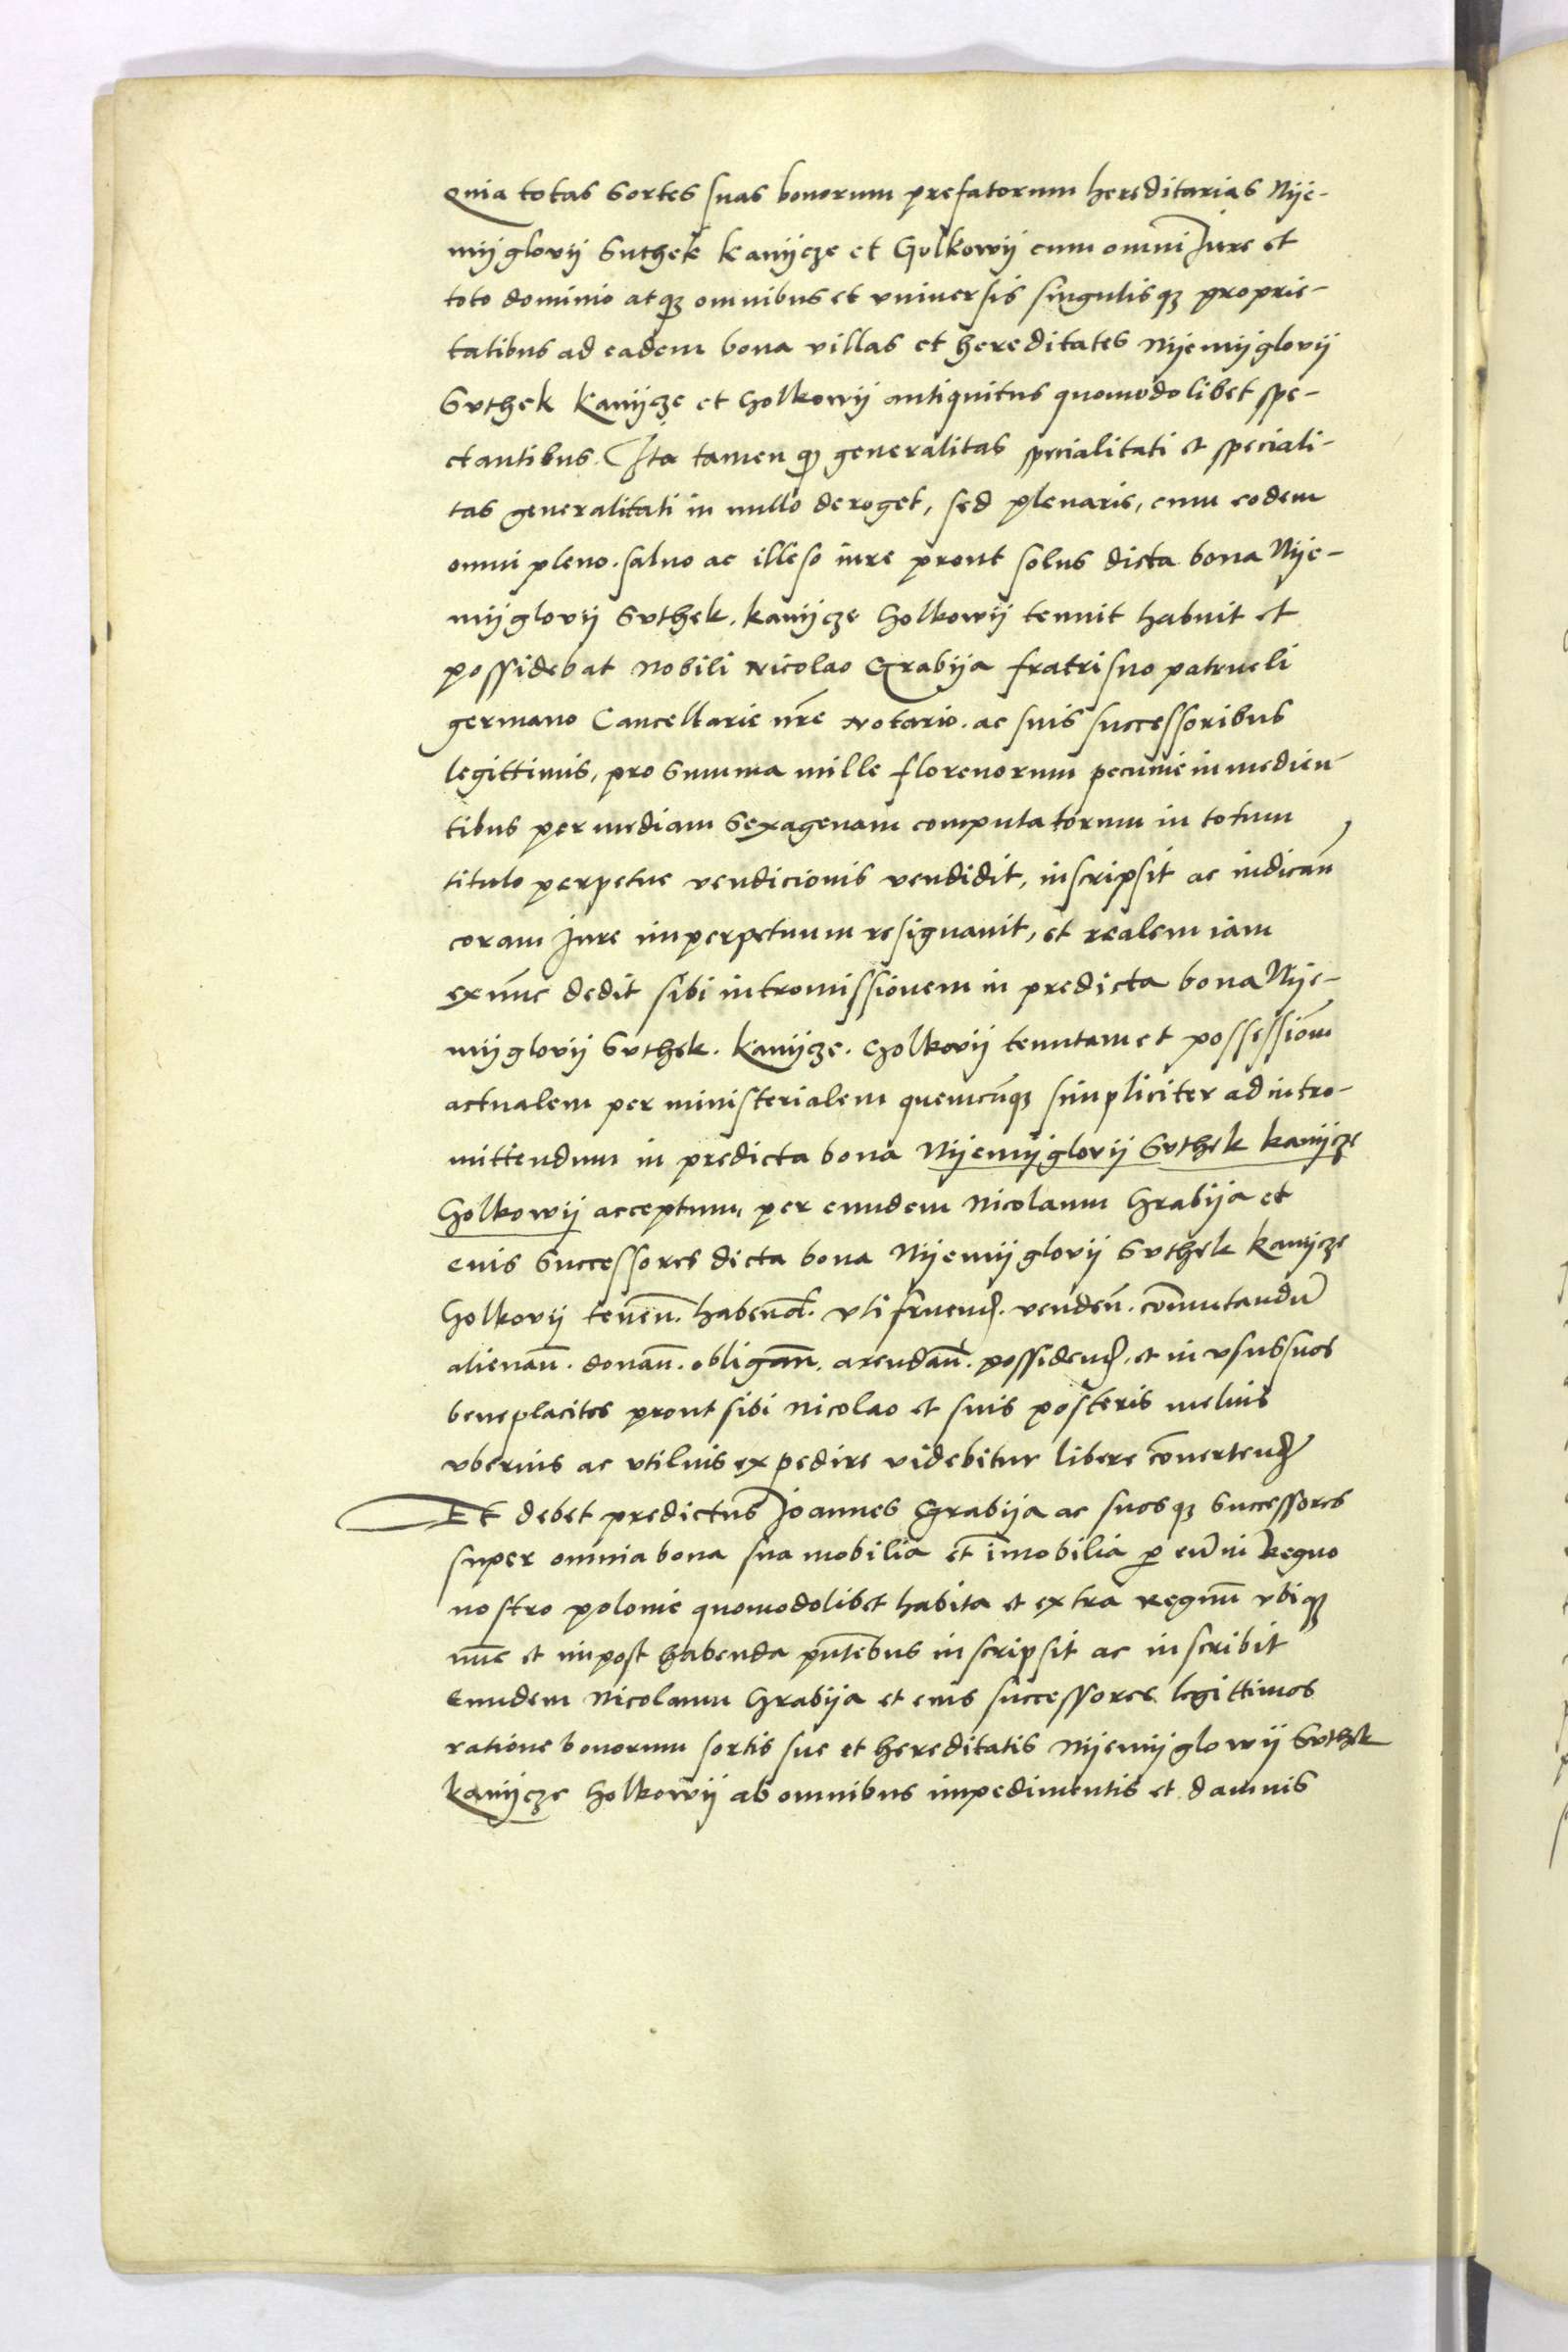 Quia totas sortes suas bonorum prefatorum hereditarias Nije-
mijglovij Suthek kanijcze et Golkowij cum omni Jure et
toto dominio atqꝫ omnibus et vniuersis singulisqꝫ proprie-
tatibus ad eadem bona villas et hereditates Nijemijglovij
Svthek Kanijcze et Golkowij antiquitus quomodolibet spe-
ctantibus. Ita tamen qꝫ generalitas specialitati et speciali-
tas generalitati in nullo deroget, sed plenarie, cum eodem
omni pleno. saluo ac illeso iure prout solus dicta bona Nije-
mijglovij Svthek. kanijcze Golkowij tenuit habuit et
possidebat Nobili Nicolao Grabija fratri suo patrueli
germano Cancellarie nr̃e Notario. ac suis successoribus
legittimis, pro Summa mille florenorum pecunie in medieñ
tibus per mediam Sexagenam computatorum in totum
titulo perpetue vendicionis vendidit, inscripsit ac iudicañ
coram Jure imperpetuum resignauit, et realem iam
ex nũc dedit sibi intromissionem in predicta bona Nije-
mijglovij Svthek. Kanijcze. Golkovij tenutam et possessiõm
actualem per ministerialem quemcũqꝫ simpliciter ad intro-
mittendum in predicta bona Nijemijglovij Svthek kanijcze
Golkowij acceptum, per eundem Nicolaum Grabija et
eius Successores dicta bona Nijemijglovij Svthek kanijcze
Golkovij teneñ. habend. vti frueñd. vendeñ. cõmutandũ
alienañ. donañ. obligañ. arendañ. possideñd. et in vsus suos
beneplacitos prout sibi Nicolao et suis posteris melius
vberius ac vtilius expedire videbitur libere cõuertend
Et debet predictus Joannes Grabija ac suosqꝫ Successores
super omnia bona sua mobilia et im̃obilia p eũ in Regno
nostro polonie quomodolibet habita et extra Regnũ vbiqꝫ
nũc et inpost habenda pñtibus inscripsit ac inscribit
Eundem Nicolaum Grabija et eius successores legittimos
ratione bonorum sortis sue et hereditatis Nijemijglowij Svthek
Kanijcze Golkowij ab omnibus impedimentis et damnis